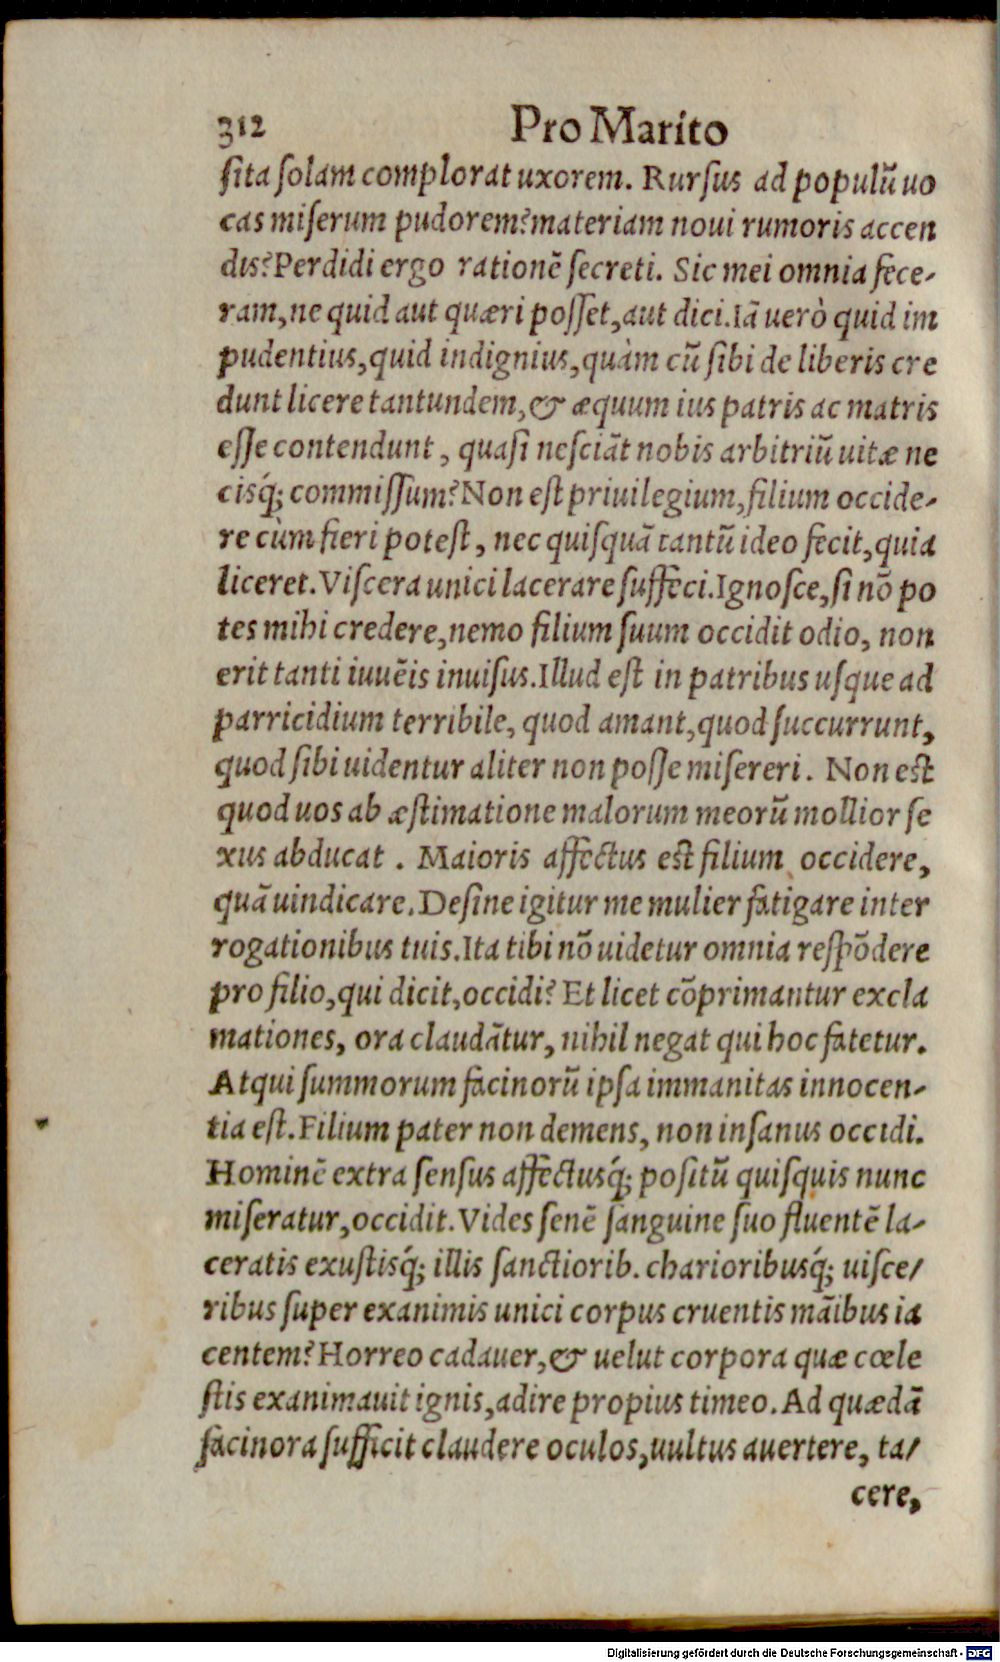 312 Pro Marito
sita solam complorat uxorem. Rursus ad populũ uo
cas miserum pudorem?materiam noui rumoris accen
dis?Perdidi ergo rationẽ secreti. Sic mei omnia fece-
ram,ne quid aut quæri posset,aut dici.Iã uerò quid im
pudentius,quid indignius,quàm cũ sibi de liberis cre
dunt licere tantundem,& æquum ius patris ac matris
esse contendunt, quasi nesciãt nobis arbitriũ uitæ ne
cisq́; commissum?Non est priuilegium,filium occide-
re cùm fieri potest, nec quisquã tantũ ideo fecit,quia
liceret.Viscera unici lacerare suffeci.Ignosce,si nõ po
tes mihi credere,nemo filium suum occidit odio, non
erit tanti iuuẽis inuisus.Illud est in patribus usque ad
parricidium terribile, quod amant,quod succurrunt,
quod sibi uidentur aliter non posse misereri. Non est
quod uos ab æstimatione malorum meorũ mollior se
xus abducat. Maioris affectus est filium occidere,
quã uindicare.Desine igitur me mulier fatigare inter
rogationibus tuis.Ita tibi nõ uidetur omnia respõdere
pro filio,qui dicit,occidi? Et licet cõprimantur excla
mationes, ora claudãtur, nihil negat qui hoc fatetur.
Atqui summorum facinorũ ipsa immanitas innocen-
tia est.Filium pater non demens, non insanus occidi.
Hominẽ extra sensus affectusq́; positũ quisquis nunc
miseratur,occidit.Vides senẽ sanguine suo fluentẽ la-
ceratis exustisq́; illis sanctiorib. charioribusq́; uisce/
ribus super exanimis unici corpus cruentis mãibus ia
centem?Horreo cadauer,& uelut corpora quæ cœle
stis exanimauit ignis,adire propius timeo.Ad quædã
facinora sufficit claudere oculos,uultus auertere, ta/
cere,
Digitalisierung gefördert durch die Deutsche Forschungsgemeinschaft - DFG